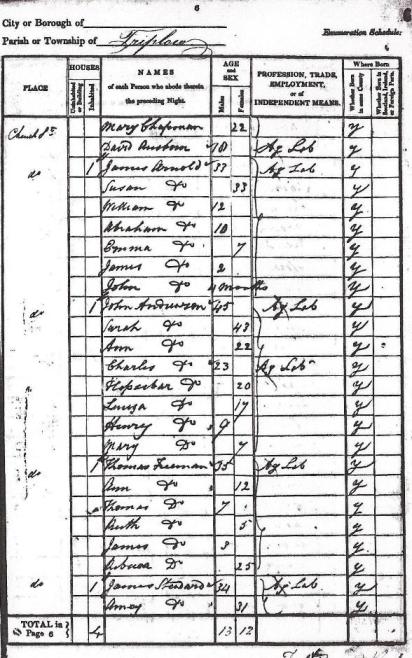 6
City or Borough of
Parish or Township of Triplow
Enumeration Schedule.
PLACE
HOUSES
Uninhabited or Building
Inhabited
NAMES
of each Person who abode therein the preceding Night.
AGE and SEX
Males
Females
PROFESSION, TRADE, EMPLOYMENT, or of INDEPENDENT MEANS.
Where Born
Whether Born in same County
Whether Born in Scotland, Ireland, or Foreign Parts.
Church St Mary Chapman 22 y
David 70 Ag Lab y
do 1 James Arnold 37 Ag Lab y
Susan Do 33 y
William Do 12 y
Abraham Do 10 y
Emma Do 7 y
James Do 2 y
John Do 4 months y
do 1 John Anderson 45 Ag Lab y
Sarah Do 43 y
Ann Do 22 y
Charles Do 23 Ag Lab y
Do 20 y
Louisa Do 17 y
Henry Do 9 y
Mary Do 7 y
do 1 Thomas Freeman 35 Ag Lab y
Ann Do 12 y
Thomas Do 7 y
Ruth Do 5 y
James Do 3 y
Rebecca Do 25 y
do 1 James 34 Ag Lab y
Amey Do 31 y
TOTAL in Page 6 4 13 12